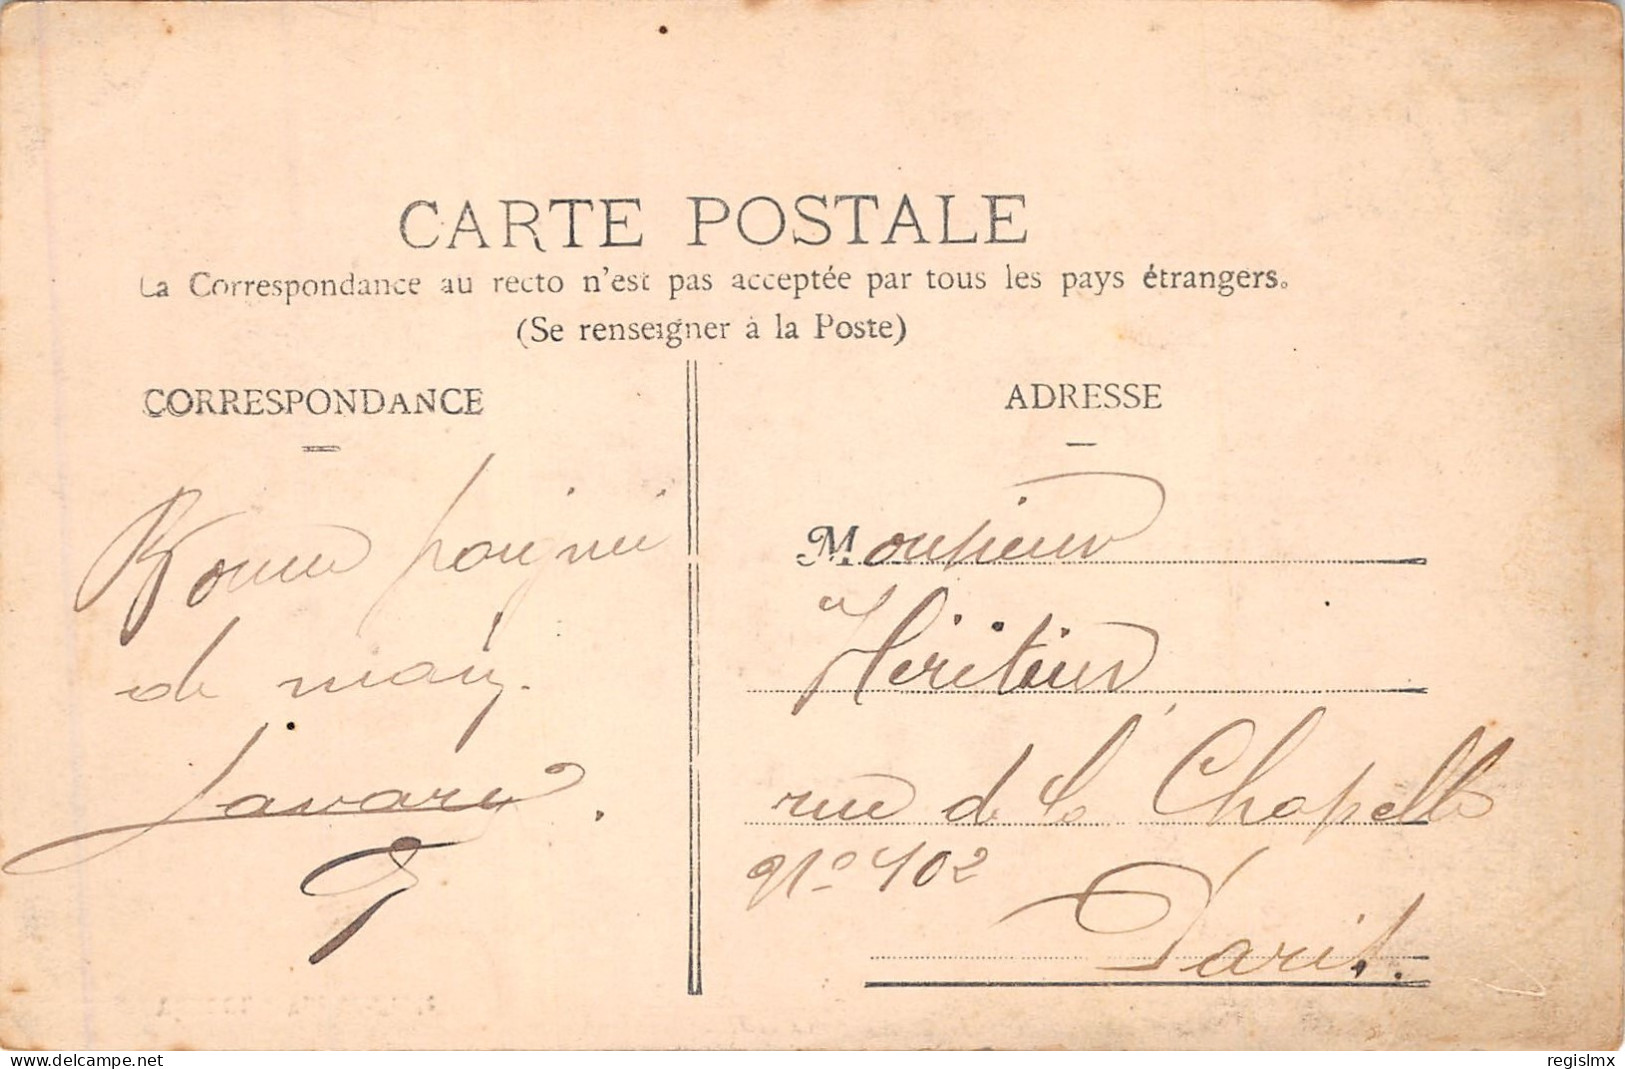 CARTE POSTALE
La Correspondance au recto n'est pas acceptée par tous les pays étrangers.
(Se renseigner à la Poste)
CORRESPONDANCE
Bonne poigné
de main.
Javary.
ADRESSE
Monsieur
Héritier
rue de la Chapelle
N° 102
Paris.
www.delcampe.net
regislmx